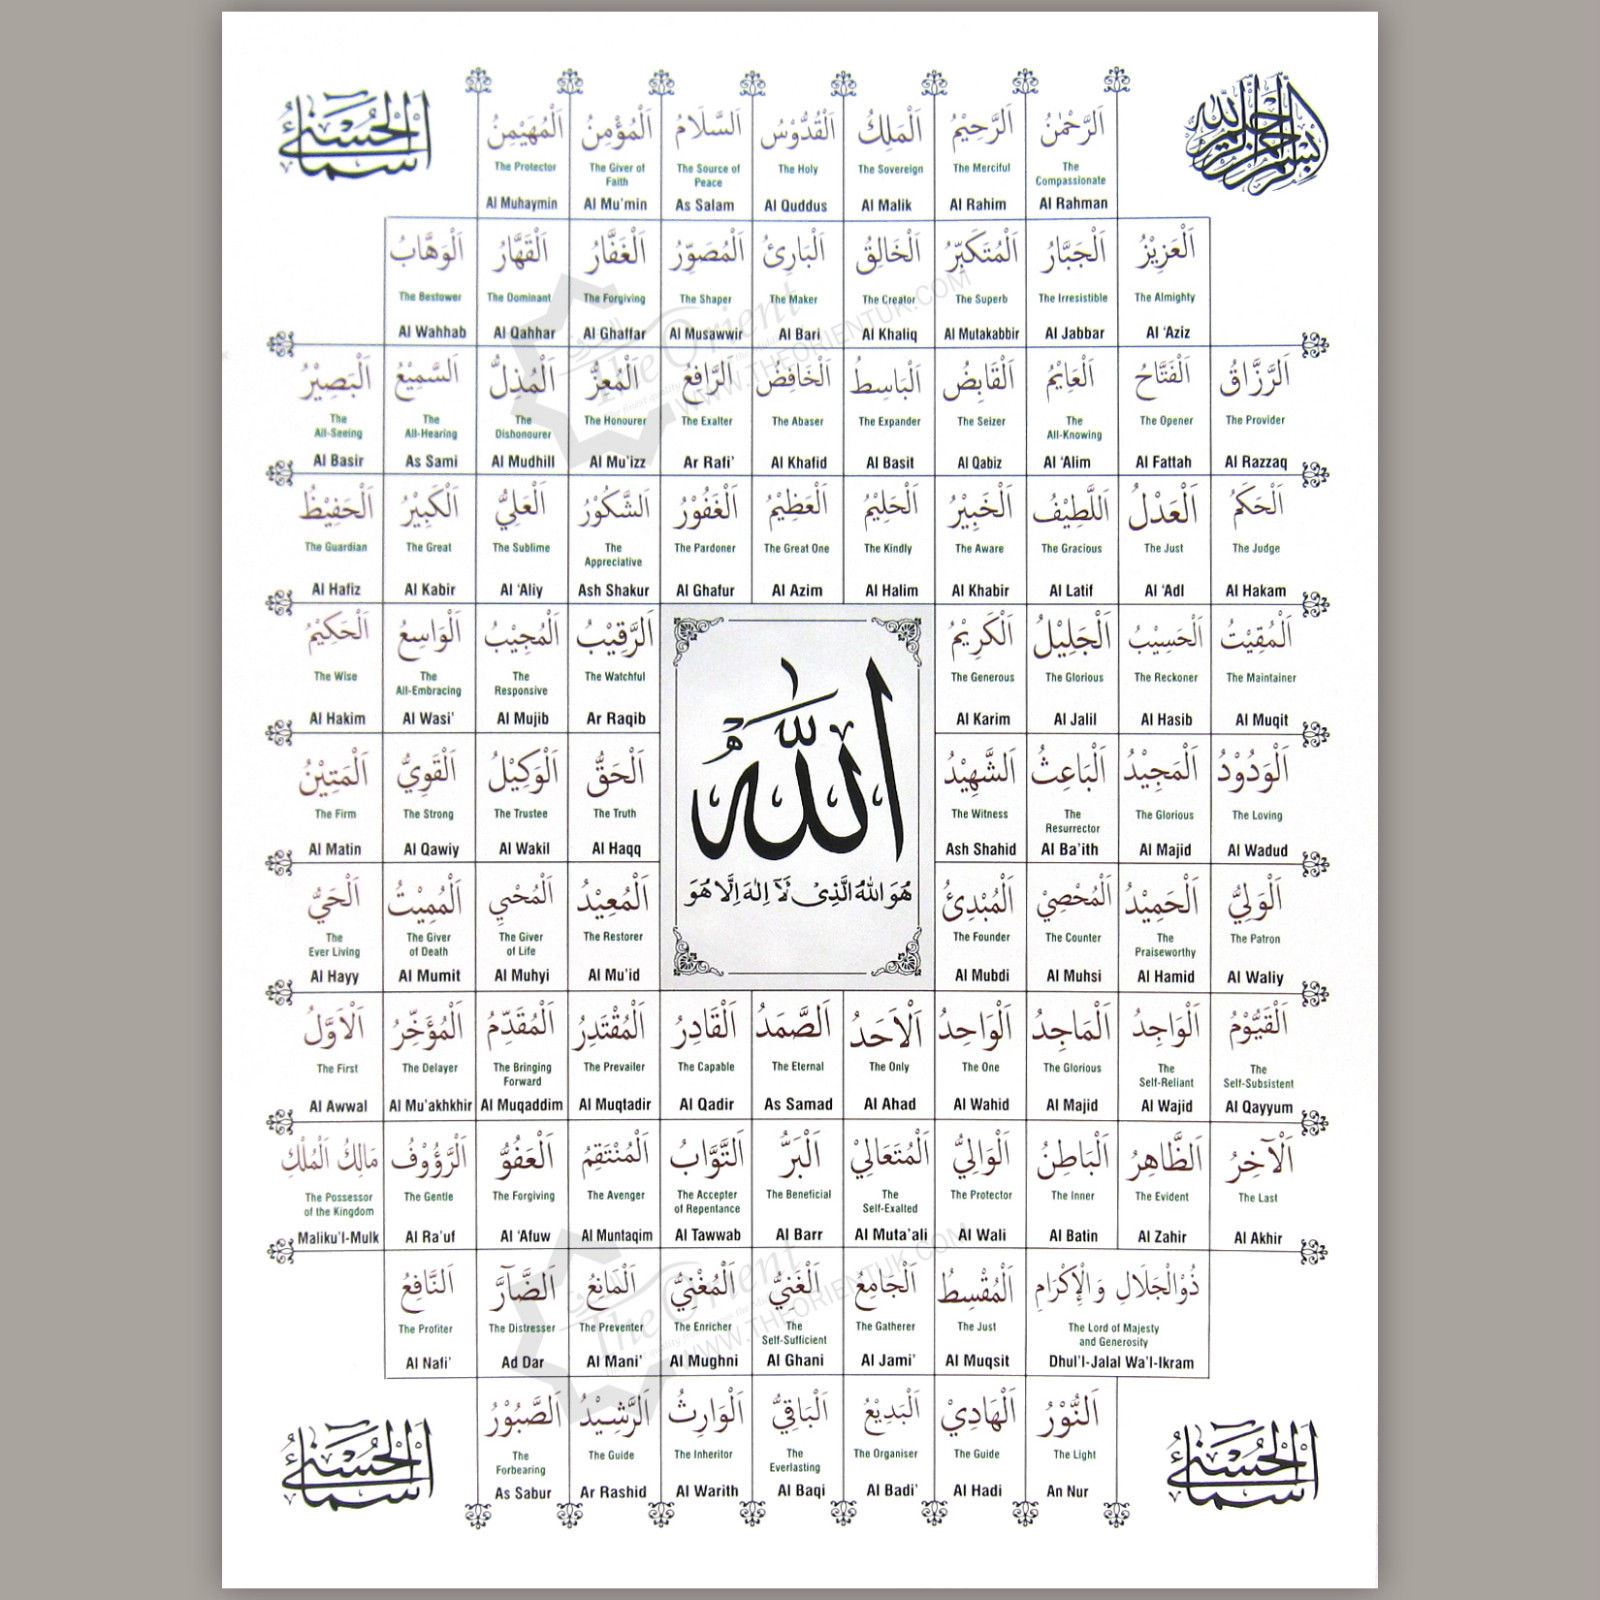 بِسْمِ اللهِ الرَّحْمٰنِ الرَّحِيْمِ
اَسْمَاءُ الْحُسْنٰى
اَلرَّحْمٰنُ
The
Compassionate
Al Rahman
اَلرَّحِيْمُ
The Merciful
Al Rahim
اَلْمَلِكُ
The Sovereign
Al Malik
اَلْقُدُّوْسُ
The Holy
Al Quddus
اَلسَّلَامُ
The Source of
Peace
As Salam
اَلْمُؤْمِنُ
The Giver of
Faith
Al Mu'min
اَلْمُهَيْمِنُ
The Protector
Al Muhaymin
اَلْعَزِيْزُ
The Almighty
Al 'Aziz
اَلْجَبَّارُ
The Irresistible
Al Jabbar
اَلْمُتَكَبِّرُ
The Superb
Al Mutakabbir
اَلْخَالِقُ
The Creator
Al Khaliq
اَلْبَارِئُ
The Maker
Al Bari
اَلْمُصَوِّرُ
The Shaper
Al Musawwir
اَلْغَفَّارُ
The Forgiving
Al Ghaffar
اَلْقَهَّارُ
The Dominant
Al Qahhar
اَلْوَهَّابُ
The Bestower
Al Wahhab
اَلرَّزَّاقُ
The Provider
Al Razzaq
اَلْفَتَّاحُ
The Opener
Al Fattah
اَلْعَلِيْمُ
The
All-Knowing
Al 'Alim
اَلْقَابِضُ
The Seizer
Al Qabiz
اَلْبَاسِطُ
The Expander
Al Basit
اَلْخَافِضُ
The Abaser
Al Khafid
اَلرَّافِعُ
The Exalter
Ar Rafi'
اَلْمُعِزُّ
The Honourer
Al Mu'izz
اَلْمُذِلُّ
The
Dishonourer
Al Mudhill
اَلسَّمِيْعُ
The
All-Hearing
As Sami
اَلْبَصِيْرُ
The
All-Seeing
Al Basir
اَلْحَكَمُ
The Judge
Al Hakam
اَلْعَدْلُ
The Just
Al 'Adl
اَللَّطِيْفُ
The Gracious
Al Latif
اَلْخَبِيْرُ
The Aware
Al Khabir
اَلْحَلِيْمُ
The Kindly
Al Halim
اَلْعَظِيْمُ
The Great One
Al Azim
اَلْغَفُوْرُ
The Pardoner
Al Ghafur
اَلشَّكُوْرُ
The
Appreciative
Ash Shakur
اَلْعَلِيُّ
The Sublime
Al 'Aliy
اَلْكَبِيْرُ
The Great
Al Kabir
اَلْحَفِيْظُ
The Guardian
Al Hafiz
اَلْمُقِيْتُ
The Maintainer
Al Muqit
اَلْحَسِيْبُ
The Reckoner
Al Hasib
اَلْجَلِيْلُ
The Glorious
Al Jalil
اَلْكَرِيْمُ
The Generous
Al Karim
اَلرَّقِيْبُ
The Watchful
Ar Raqib
اَلْمُجِيْبُ
The
Responsive
Al Mujib
اَلْوَاسِعُ
The
All-Embracing
Al Wasi'
اَلْحَكِيْمُ
The Wise
Al Hakim
اَللّٰهُ
هُوَ اللهُ الَّذِىْ لَآ اِلٰهَ اِلَّا هُوَ
اَلْوَدُوْدُ
The Loving
Al Wadud
اَلْمَجِيْدُ
The Glorious
Al Majid
اَلْبَاعِثُ
The
Resurrector
Al Ba'ith
اَلشَّهِيْدُ
The Witness
Ash Shahid
اَلْحَقُّ
The Truth
Al Haqq
اَلْوَكِيْلُ
The Trustee
Al Wakil
اَلْقَوِيُّ
The Strong
Al Qawiy
اَلْمَتِيْنُ
The Firm
Al Matin
اَلْوَلِيُّ
The Patron
Al Waliy
اَلْحَمِيْدُ
The
Praiseworthy
Al Hamid
اَلْمُحْصِي
The Counter
Al Muhsi
اَلْمُبْدِئُ
The Founder
Al Mubdi
اَلْمُعِيْدُ
The Restorer
Al Mu'id
اَلْمُحْيِي
The Giver
of Life
Al Muhyi
اَلْمُمِيْتُ
The Giver
of Death
Al Mumit
اَلْحَيُّ
The
Ever Living
Al Hayy
اَلْقَيُّوْمُ
The
Self-Subsistent
Al Qayyum
اَلْوَاجِدُ
The
Self-Reliant
Al Wajid
اَلْمَاجِدُ
The Glorious
Al Majid
اَلْوَاحِدُ
The One
Al Wahid
اَلْاَحَدُ
The Only
Al Ahad
اَلصَّمَدُ
The Eternal
As Samad
اَلْقَادِرُ
The Capable
Al Qadir
اَلْمُقْتَدِرُ
The Prevailer
Al Muqtadir
اَلْمُقَدِّمُ
The Bringing
Forward
Al Muqaddim
اَلْمُؤَخِّرُ
The Delayer
Al Mu'akhkhir
اَلْاَوَّلُ
The First
Al Awwal
اَلْآخِرُ
The Last
Al Akhir
اَلظَّاهِرُ
The Evident
Al Zahir
اَلْبَاطِنُ
The Inner
Al Batin
اَلْوَالِيُّ
The Protector
Al Wali
اَلْمُتَعَالِيْ
The
Self-Exalted
Al Muta'ali
اَلْبَرُّ
The Beneficial
Al Barr
اَلتَّوَّابُ
The Accepter
of Repentance
Al Tawwab
اَلْمُنْتَقِمُ
The Avenger
Al Muntaqim
اَلْعَفُوُّ
The Forgiving
Al 'Afuw
اَلرَّؤُوْفُ
The Gentle
Al Ra'uf
مَالِكُ الْمُلْكِ
The Possessor
of the Kingdom
Maliku'l-Mulk
ذُوْالْجَلَالِ وَالْاِكْرَامِ
The Lord of Majesty
and Generosity
Dhul'l-Jalal Wa'l-Ikram
اَلْمُقْسِطُ
The Just
Al Muqsit
اَلْجَامِعُ
The Gatherer
Al Jami'
اَلْغَنِيُّ
The
Self-Sufficient
Al Ghani
اَلْمُغْنِيُّ
The Enricher
Al Mughni
اَلْمَانِعُ
The Preventer
Al Mani'
اَلضَّآرُّ
The Distresser
Ad Dar
اَلنَّافِعُ
The Profiter
Al Nafi'
اَلنُّوْرُ
The Light
An Nur
اَلْهَادِيْ
The Guide
Al Hadi
اَلْبَدِيْعُ
The Organiser
Al Badi'
اَلْبَاقِيُّ
The
Everlasting
Al Baqi
اَلْوَارِثُ
The Inheritor
Al Warith
اَلرَّشِيْدُ
The Guide
Ar Rashid
اَلصَّبُوْرُ
The
Forbearing
As Sabur
اَسْمَاءُ الْحُسْنٰى
اَسْمَاءُ الْحُسْنٰى
The Orient
WWW.THEORIENTUK.COM
The Orient
WWW.THEORIENTUK.COM